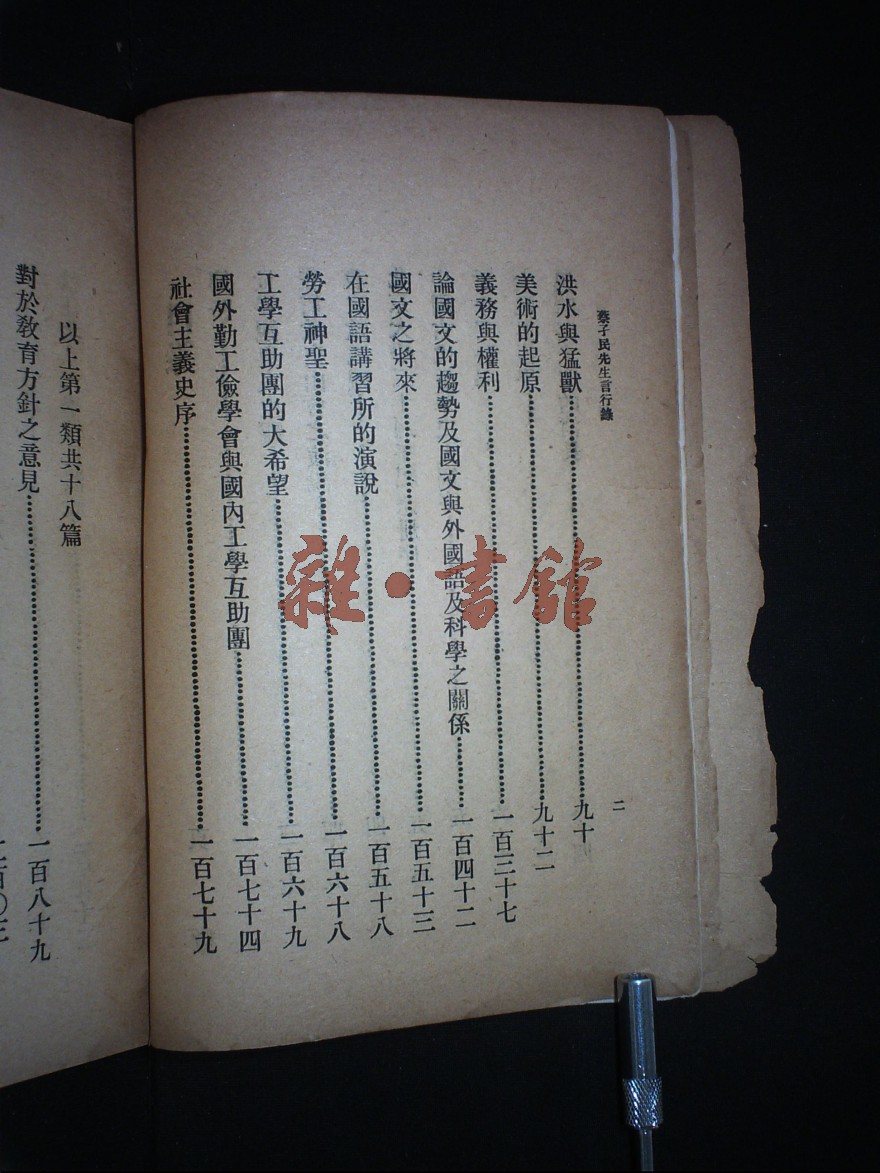 蔡孑民先生言行錄
二
洪水與猛獸……九十
美術的起原……九十二
義務與權利……一百三十七
論國文的趨勢及國文與外國語及科學之關係……一百四十二
國文之將來……一百五十三
在國語講習所的演說……一百五十八
勞工神聖……一百六十八
工學互助團的大希望……一百六十九
國外勤工儉學會與國內工學互助團……一百七十四
社會主義史序……一百七十九
以上第一類共十八篇
對於敎育方針之意見……一百八十九
雜·書館